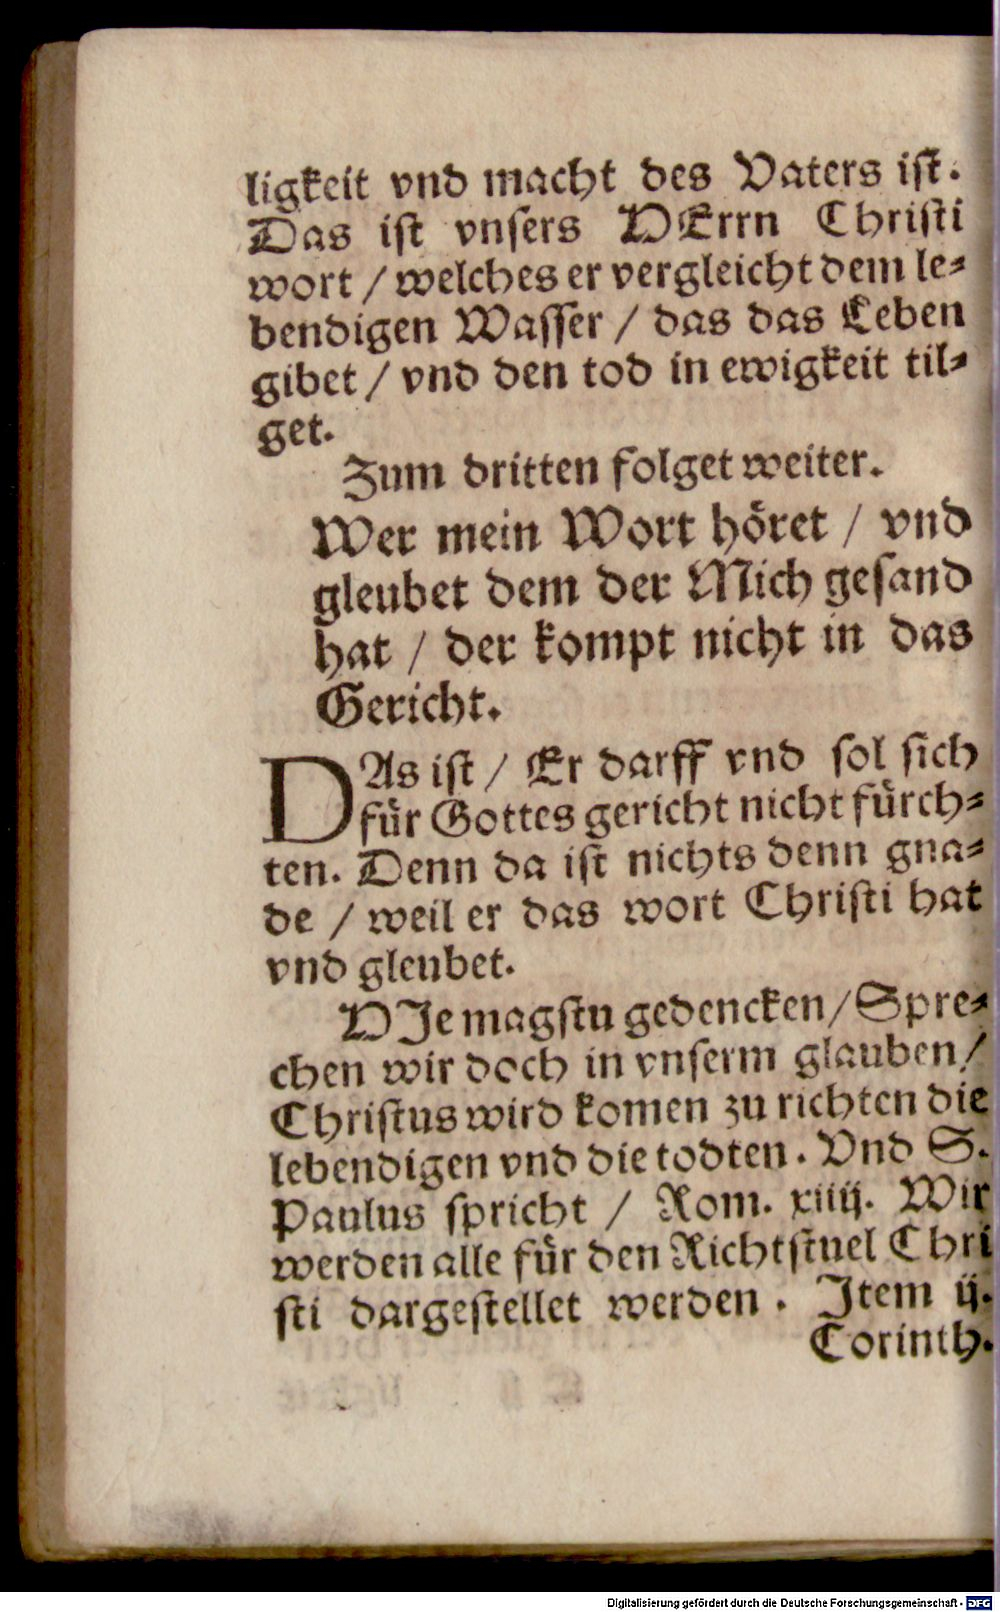 ligkeit vnd macht des Vaters ist.
Das ist vnsers HErrn Christi
wort / welches er vergleicht dem le⸗
bendigen Wasser / das das Leben
gibet / vnd den tod in ewigkeit til⸗
get.
Zum dritten folget weiter.
Wer mein Wort höret / vnd
gleubet dem der Mich gesand
hat / der kompt nicht in das
Gericht.
DAs ist / Er darff vnd sol sich
für Gottes gericht nicht fürch⸗
ten. Denn da ist nichts denn gna⸗
de / weil er das wort Christi hat
vnd gleubet.
HIe magstu gedencken / Spre⸗
chen wir doch in vnserm glauben /
Christus wird komen zu richten die
lebendigen vnd die todten. Vnd S.
Paulus spricht / Rom. xiiij. Wir
werden alle für den Richtstuel Chri
sti dargestellet werden. Item ij.
Corinth.
Digitalisierung gefördert durch die Deutsche Forschungsgemeinschaft - DFG